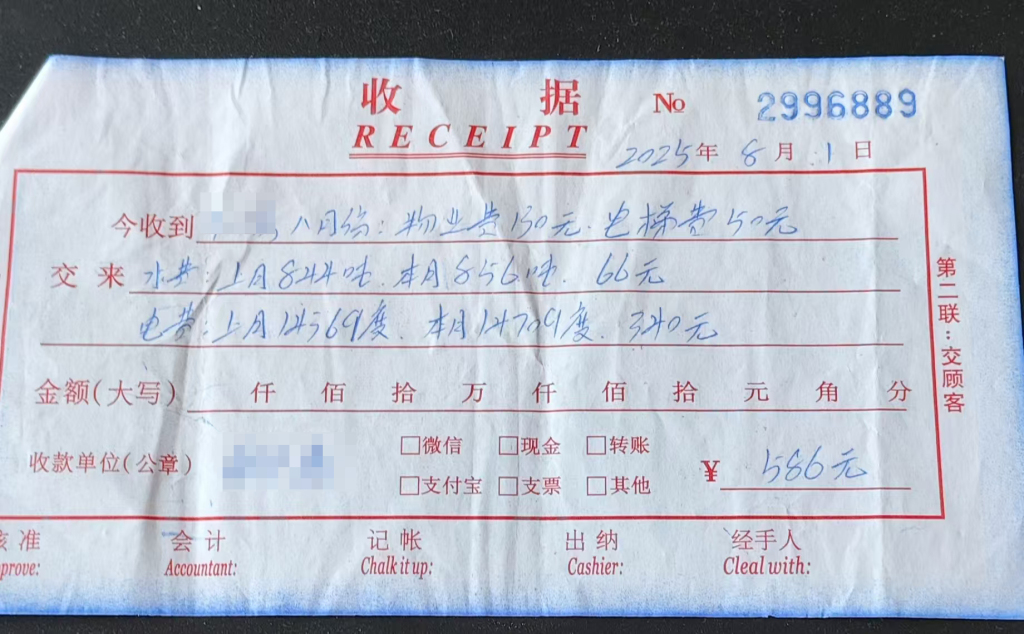 收 据 No 2996889
RECEIPT
2025年 8月 1日
今收到 八月份：物业费130元. 电梯费50元
交 来 水费：上月844吨. 本月856吨. 66元
电费：上月14369度. 本月14709度. 340元
金额(大写) 仟 佰 拾 万 仟 佰 拾 元 角 分
收款单位(公章) □微信 □现金 □转账
□支付宝 □支票 □其他
¥ 586元
第二联：交顾客
核准 会计 记帐 出纳 经手人
prove: Accountant: Chalk it up: Cashier: Cleal with: